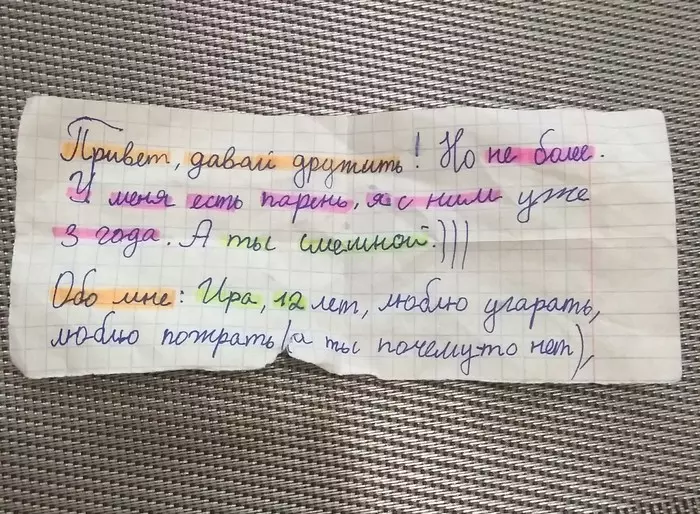 Привет, давай дружить! Но не более.
У меня есть парень, я с ним уже
3 года. А ты смешной.)))
Обо мне: Ира, 12 лет, люблю угарать,
люблю пожрать (а ты почему-то нет),